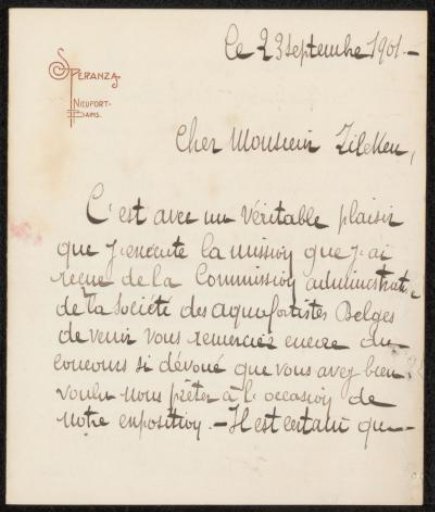 Speranza
Nieuport-
Bains.
le 23 septembre 1901.-
Cher Monsieur Zilcken,
C'est avec un véritable plaisir
que j'exécute la mission que j'ai
reçue de la Commission administrative
de la Société des aquafortistes Belges
de venir vous remerciez encore du
concours si dévoué que vous avez bien
voulu nous prêter à l'occasion de
notre exposition.- Il est certain que-